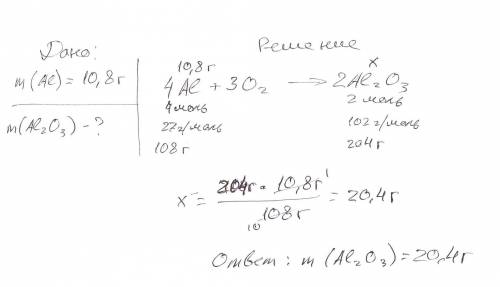 Дано:
m(Al) = 10,8г
m(Al₂O₃) - ?
Решение
10,8г x
4Al + 3O₂ → 2Al₂O₃
4моль 2 моль
27г/моль 102г/моль
108г 204г
x = 204г · 10,8г / 108г = 20,4г
1
10
Ответ: m(Al₂O₃) = 20,4г